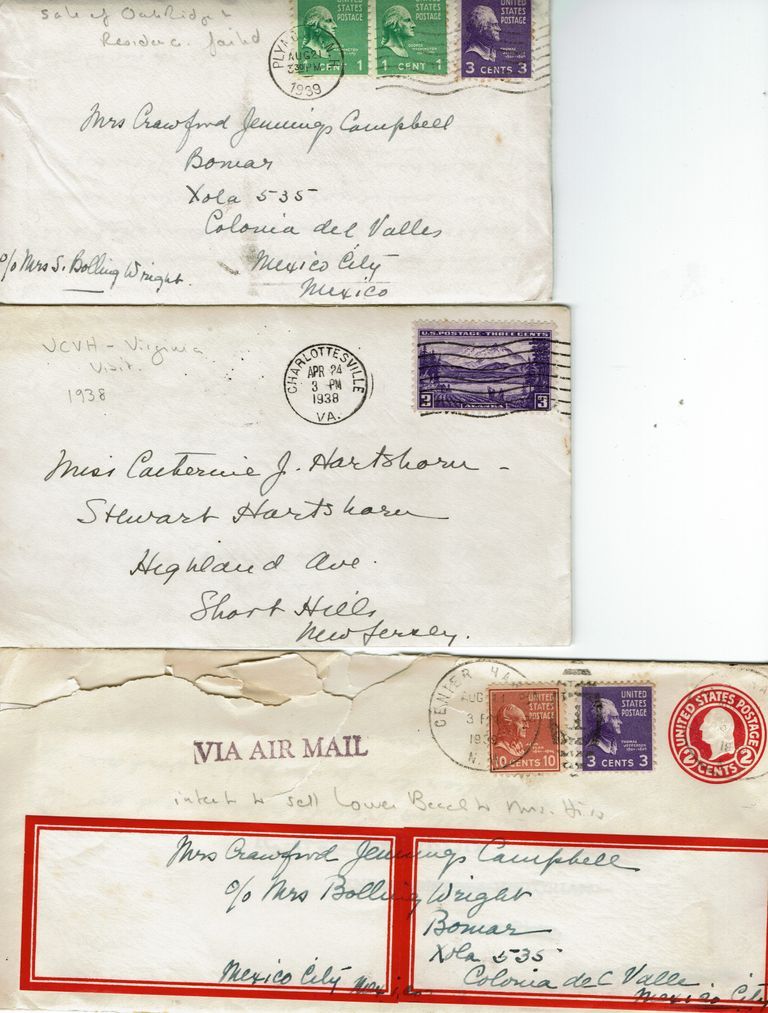 Sale of Oak Ridge &
Residence failed
PLYM
AUG 21
3 30 PM
1939
1 CENT 1
UNITED
STATES
POSTAGE
CENT 1
UNITED
STATES
POSTAGE
3 CENTS 3
Mrs Crawford Jennings Campbell
Bomar
Xola 535
Colonia del Valles
c/o Mrs S. Bolling Wright.
Mexico City
Mexico
VCVH - Virginia
Visit.
1938
CHARLOTTESVILLE
APR 24
3 PM
1938
VA.
U.S. POSTAGE THREE CENTS
3 ALASKA 3
Miss Catherine J. Hartshorn -
Stewart Hartshorn
Highland Ave.
Short Hills
New Jersey.
CENTER HA
AUG
3 P
193
N.
STATES
POSTAGE
10 CENTS 10
UNITED
STATES
POSTAGE
THOMAS
JEFFERSON
3 CENTS 3
UNITED STATES POSTAGE
2 CENTS 2
VIA AIR MAIL
intent to sell Lower Beach to Mrs.
Mrs Crawford Jennings Campbell
c/o Mrs Bolling Wright
Bomar
Xola 535
Colonia del Valle
Mexico City Mexico
Mexico City